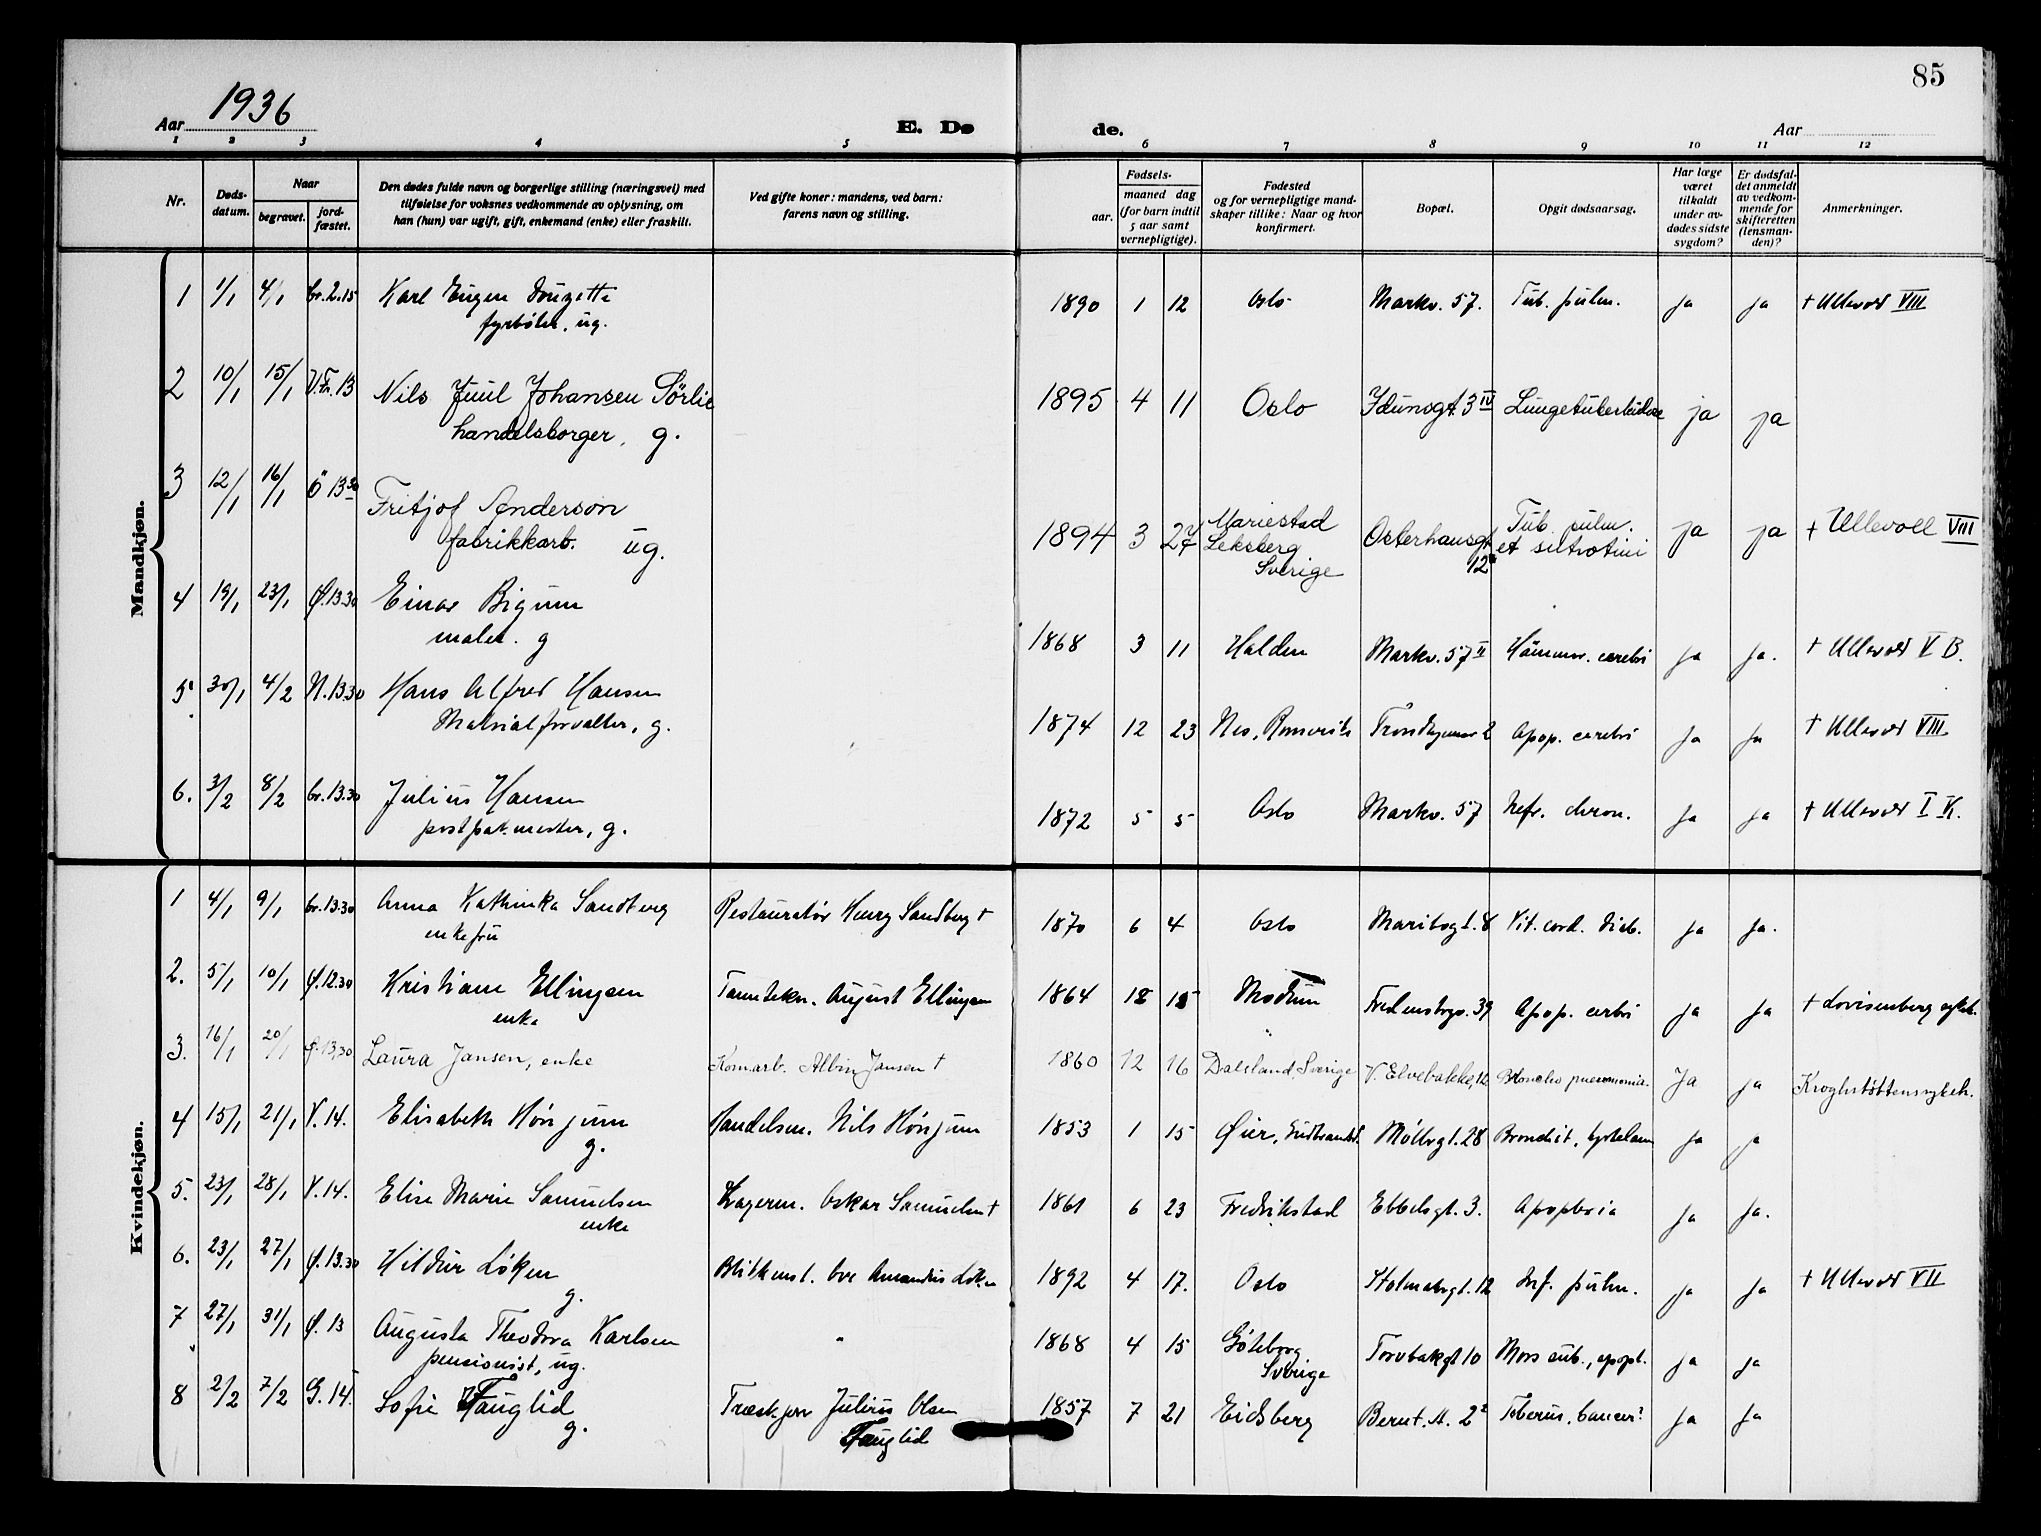 85
Aar 1936
E. Dø de.
Aar
1 2 3 4 5 6 7 8 9 10 11 12
Nr.
Døds-
datum.
Naar
begravet.
jord-
fæstet.
Den dødes fulde navn og borgerlige stilling (næringsvei) med
tilføielse for voksnes vedkommende av oplysning, om
han (hun) var ugift, gift, enkemand (enke) eller fraskilt.
Ved gifte koner: mandens, ved barn:
farens navn og stilling.
Fødsels-
aar.
maaned dag
(for barn indtil
5 aar samt
vernepligtige).
Fødested
og for vernepligtige mand-
skaper tillike: Naar og hvor
konfirmert.
Bopæl.
Opgit dødsaarsag.
Har læge
været
tilkaldt
under av-
dødes sidste
sygdom?
Er dødsfal-
det anmeldt
av vedkom-
mende for
skifteretten
(lensman-
den)?
Anmerkninger.
Mandkjøn.
1 1/1 4/1 Gr. 2.15 Karl Eugen 1890 1 12 Oslo Markv. 57. Tub. pulm. ja ja + Ullevål VIII
fyrbøter, ug.
2 10/1 15/1 V.Fr. 13 Nils Juul Johansen Sörlie 1895 4 11 Oslo Idunsgt. 3 IV Lungetuberkulose ja ja
handelsborger, g.
3 12/1 16/1 Ö 13 30 Fritjof Anderson 1894 3 27 Mariestad Osterhausgt. Tub. pulm. ja ja + Ullevoll VIII
fabrikkarb. ug. Leksberg 12 et
Sverige
4 19/1 23/1 Ø. 13.30 Einar Bigum 1868 3 11 Halden Markv. 57 II Hämorr. cerebri ja ja. + Ullevål V B.
maler. g
5 30/1 4/2 N. 13.30 Hans Alfred Hansen 1874 12 23 Nes, Romerike 2 Apop. cerebri ja ja + Ullevål VIII
Matrialforvalter, g.
6. 3/2 8/2 Gr. 13.30 Julius Hansen 1872 5 5 Oslo Markv. 57 Nefr. chron. ja ja + Ullevål I K.
postpakmester, g.
Kvindekjøn.
1 4/1 9/1 Gr. 13.30 Anna Kathinka Sandberg Restauratør Henry Sandberg + 1870 6 4 Oslo Maribogt. 8 Vit. cord. Diab. ja ja.
enkefru
2. 5/1 10/1 Ø. 12.30 Kristiane Ellingsen Tanntekn. August Ellingsen 1864 12 15 Modum Fredensborgv. 39 Apop. cerebri ja ja + Lovisenberg sykeh.
enke
3. 16/1 20/1 Ø. 13,30 Laura Jansen, enke Komarb. Albin Jansen + 1860 12 16 Dalsland, Sverige V. Elvebakke, 12 Broncho pneumonia. Ja ja Kroghstøttensykeh.
4 15/1 21/1 V. 14. Elisabeth Hønjum Handelsm. Nils Hønjum 1853 1 15 Øier, Gudbrandsd. Møllergt. 28 Bronchit, ja ja
g.
5. 23/1 28/1 V. 14. Elise Marie Samuelsen Lagerm. Oskar Samuelsen + 1861 6 23 Fredrikstad Ebbelsgt. 3. Apoplexia ja ja.
enke
6. 23/1 27/1 Ø. 13.30 Hildur Løken Blikkensl. Ove Amandus Løken 1892 4 17. Oslo Holmensgt. 12 Inf. pulm. ja ja + Ullevål VII
g.
7 27/1 31/1 Ø. 13 Augusta Theodora Karlsen " 1868 4 15 Göteborg Torvbakgt 10 Mors sub., apopl. ja ja
pensionist, ug. Sverige
8 2/2 7/2 G. 14. Sofie Fauglid Træskjær Julius Olsen 1857 7 21 Eidsberg Bernt A. 2 2 cancer? ja ja
g. Fauglid